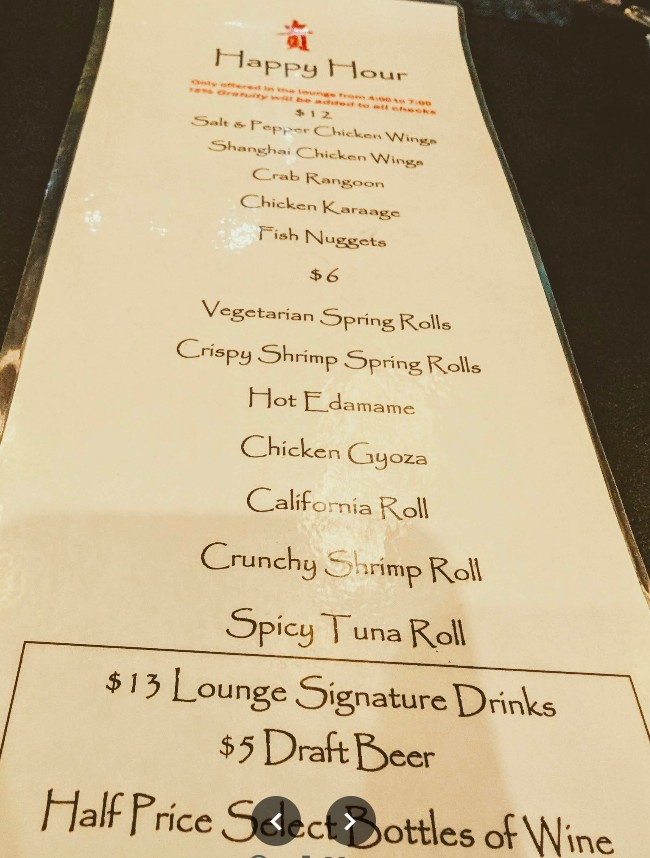 Happy Hour
Only offered in the lounge from 4:00 to 7:00
18% Gratuity will be added to all checks
$12
Salt & Pepper Chicken Wings
Shanghai Chicken Wings
Crab Rangoon
Chicken Karaage
Fish Nuggets
$6
Vegetarian Spring Rolls
Crispy Shrimp Spring Rolls
Hot Edamame
Chicken Gyoza
California Roll
Crunchy Shrimp Roll
Spicy Tuna Roll
$13 Lounge Signature Drinks
$5 Draft Beer
Half Price Select Bottles of Wine